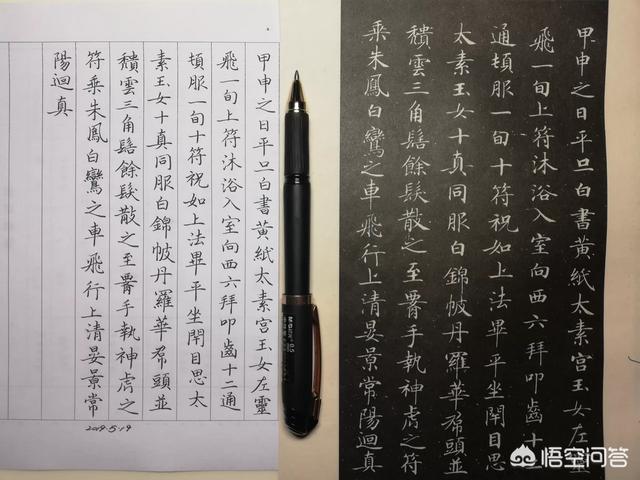 甲申之日平旦白書黃紙太素宮玉女左靈
飛一旬上符沐浴入室向西六拜叩齒十二通
頓服一旬十符祝如上法畢平坐閉目思太
素玉女十真同服白錦帔丹羅華帬頭並
穨雲三角髻餘髮散之至腰手執神虎之
符乘朱鳳白鸞之車飛行上清晏景常
陽迴真
2019.5.19
甲申之日平旦白書黃紙太素宮玉女左靈
飛一旬上符沐浴入室向西六拜叩齒十二
通頓服一旬十符祝如上法畢平坐閉目思
太素玉女十真同服白錦帔丹羅華帬頭並
穨雲三角髻餘髮散之至腰手執神虎之符
乘朱鳳白鸞之車飛行上清晏景常陽迴真
悟空问答